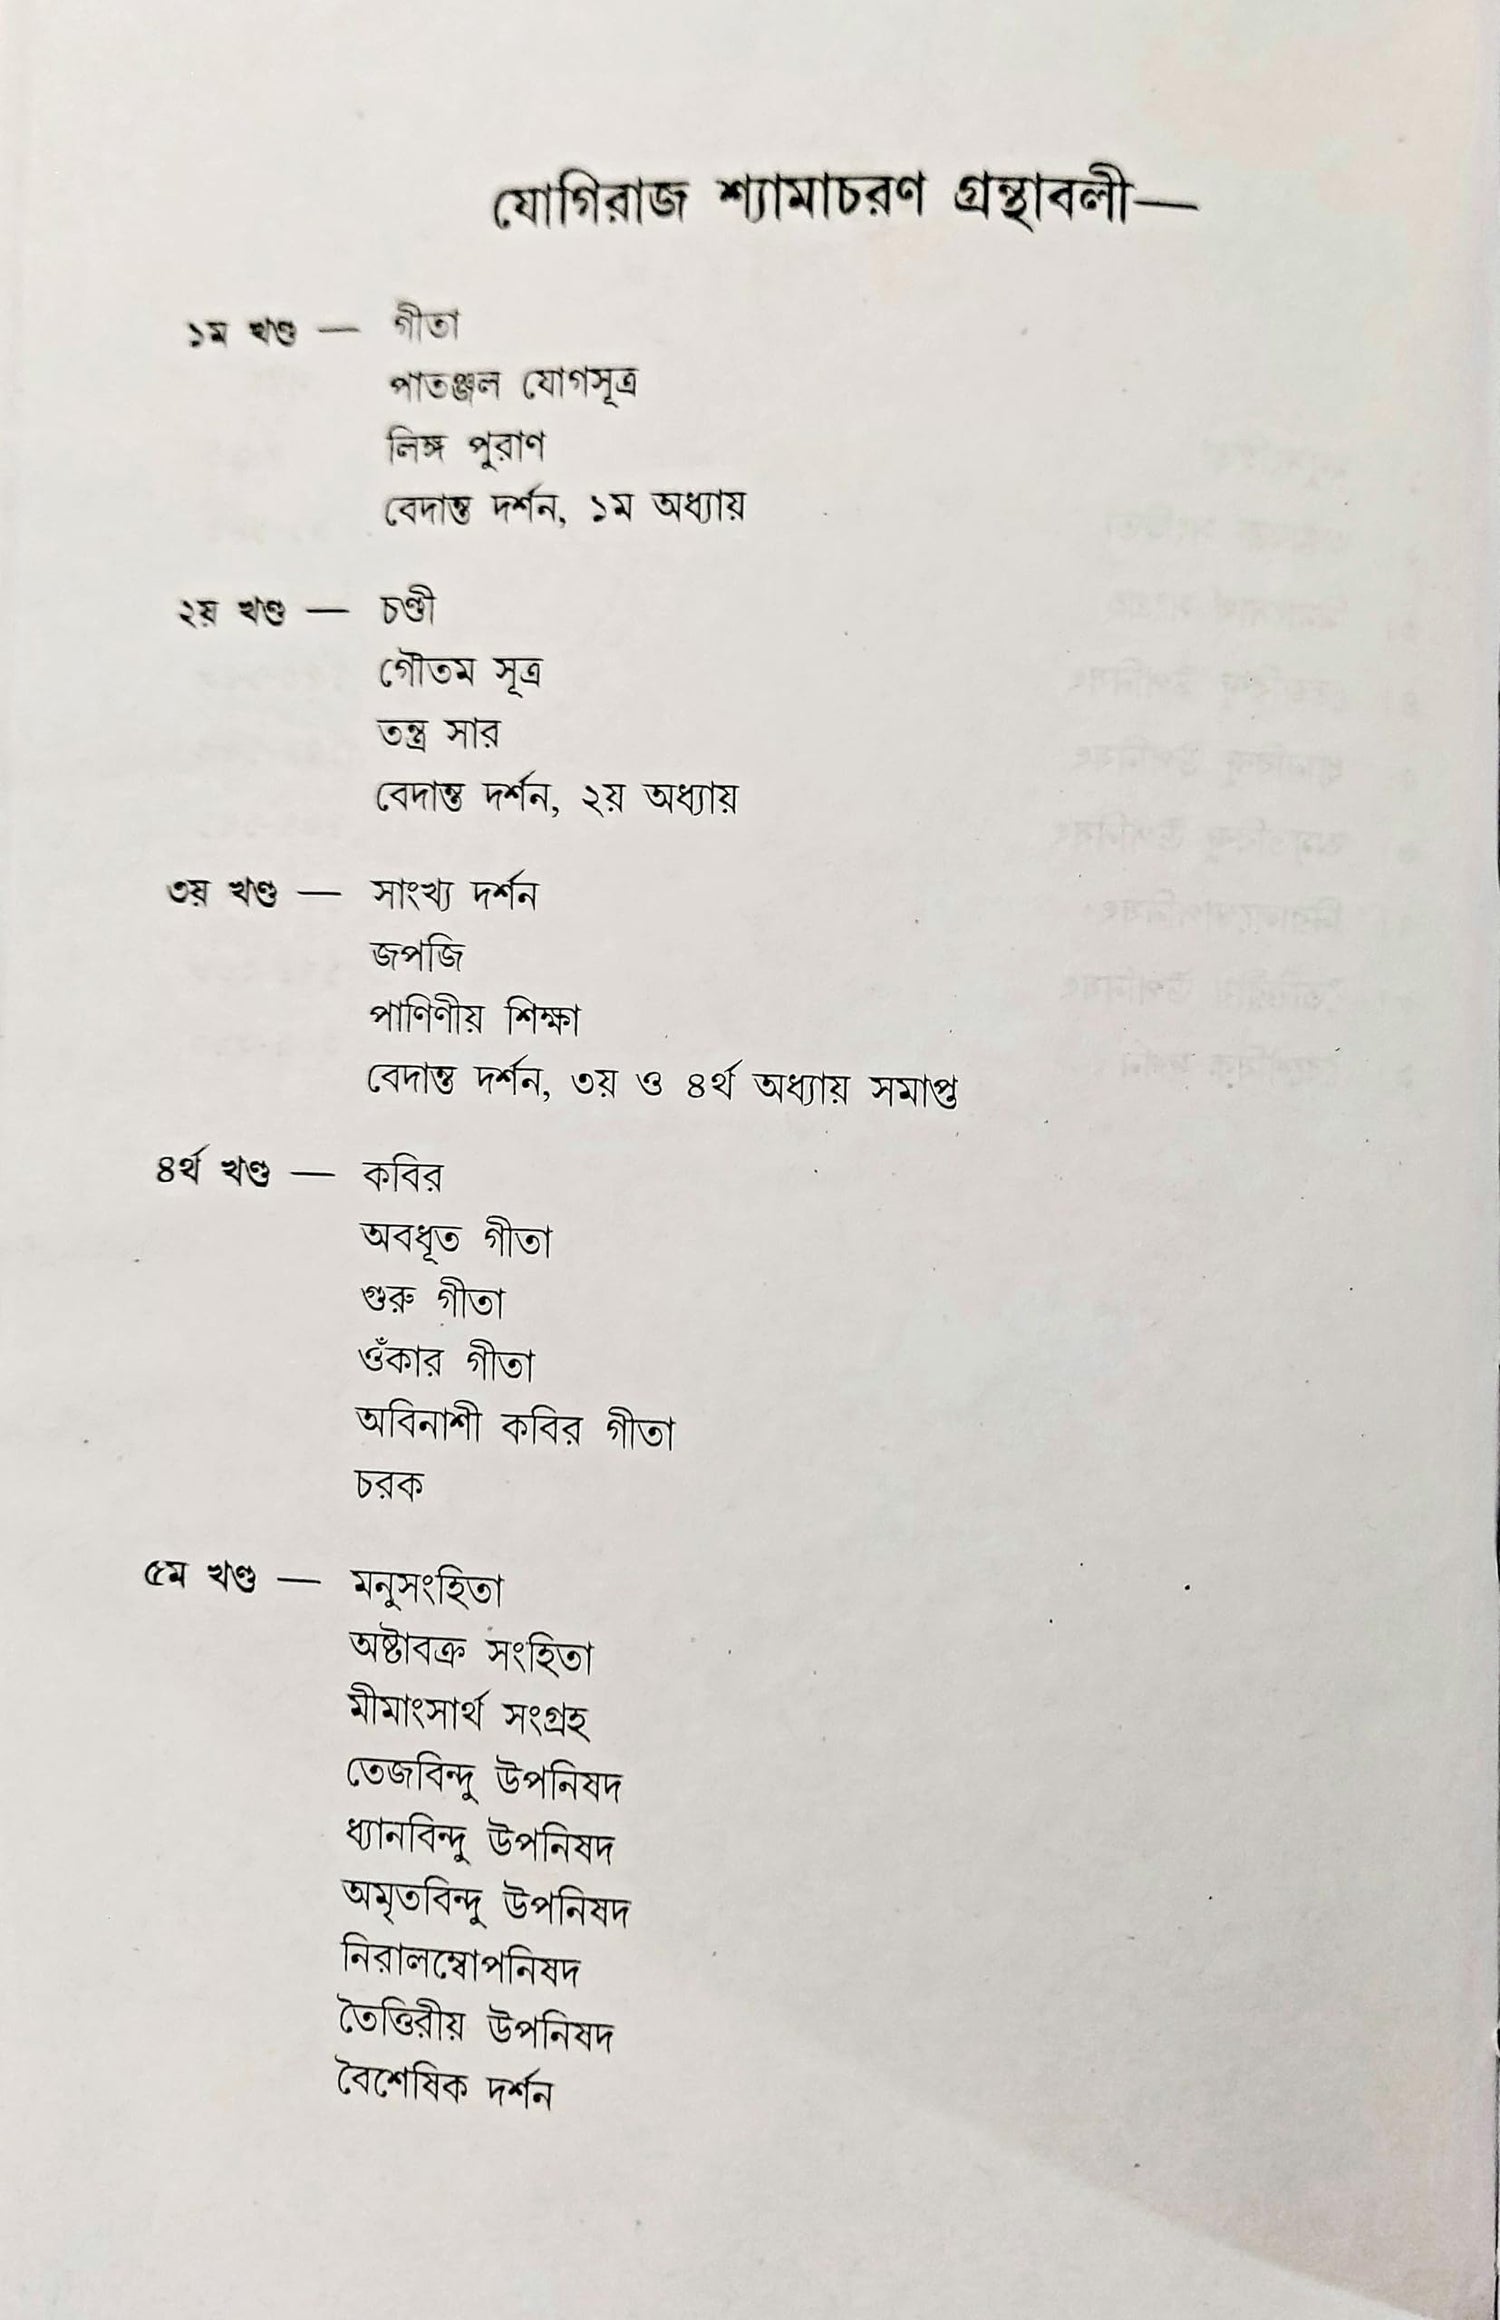 যোগিরাজ শ্যামাচরণ গ্রন্থাবলী—
১ম খণ্ড — গীতা
পাতঞ্জল যোগসূত্র
লিঙ্গ পুরাণ
বেদান্ত দর্শন, ১ম অধ্যায়
২য় খণ্ড — চণ্ডী
গৌতম সূত্র
তন্ত্র সার
বেদান্ত দর্শন, ২য় অধ্যায়
৩য় খণ্ড — সাংখ্য দর্শন
জপজি
পাণিণীয় শিক্ষা
বেদান্ত দর্শন, ৩য় ও ৪র্থ অধ্যায় সমাপ্ত
৪র্থ খণ্ড — কবির
অবধূত গীতা
গুরু গীতা
ওঁকার গীতা
অবিনাশী কবির গীতা
চরক
৫ম খণ্ড — মনুসংহিতা
অষ্টাবক্র সংহিতা
মীমাংসার্থ সংগ্রহ
তেজবিন্দু উপনিষদ
ধ্যানবিন্দু উপনিষদ
অমৃতবিন্দু উপনিষদ
নিরালম্বোপনিষদ
তৈত্তিরীয় উপনিষদ
বৈশেষিক দর্শন